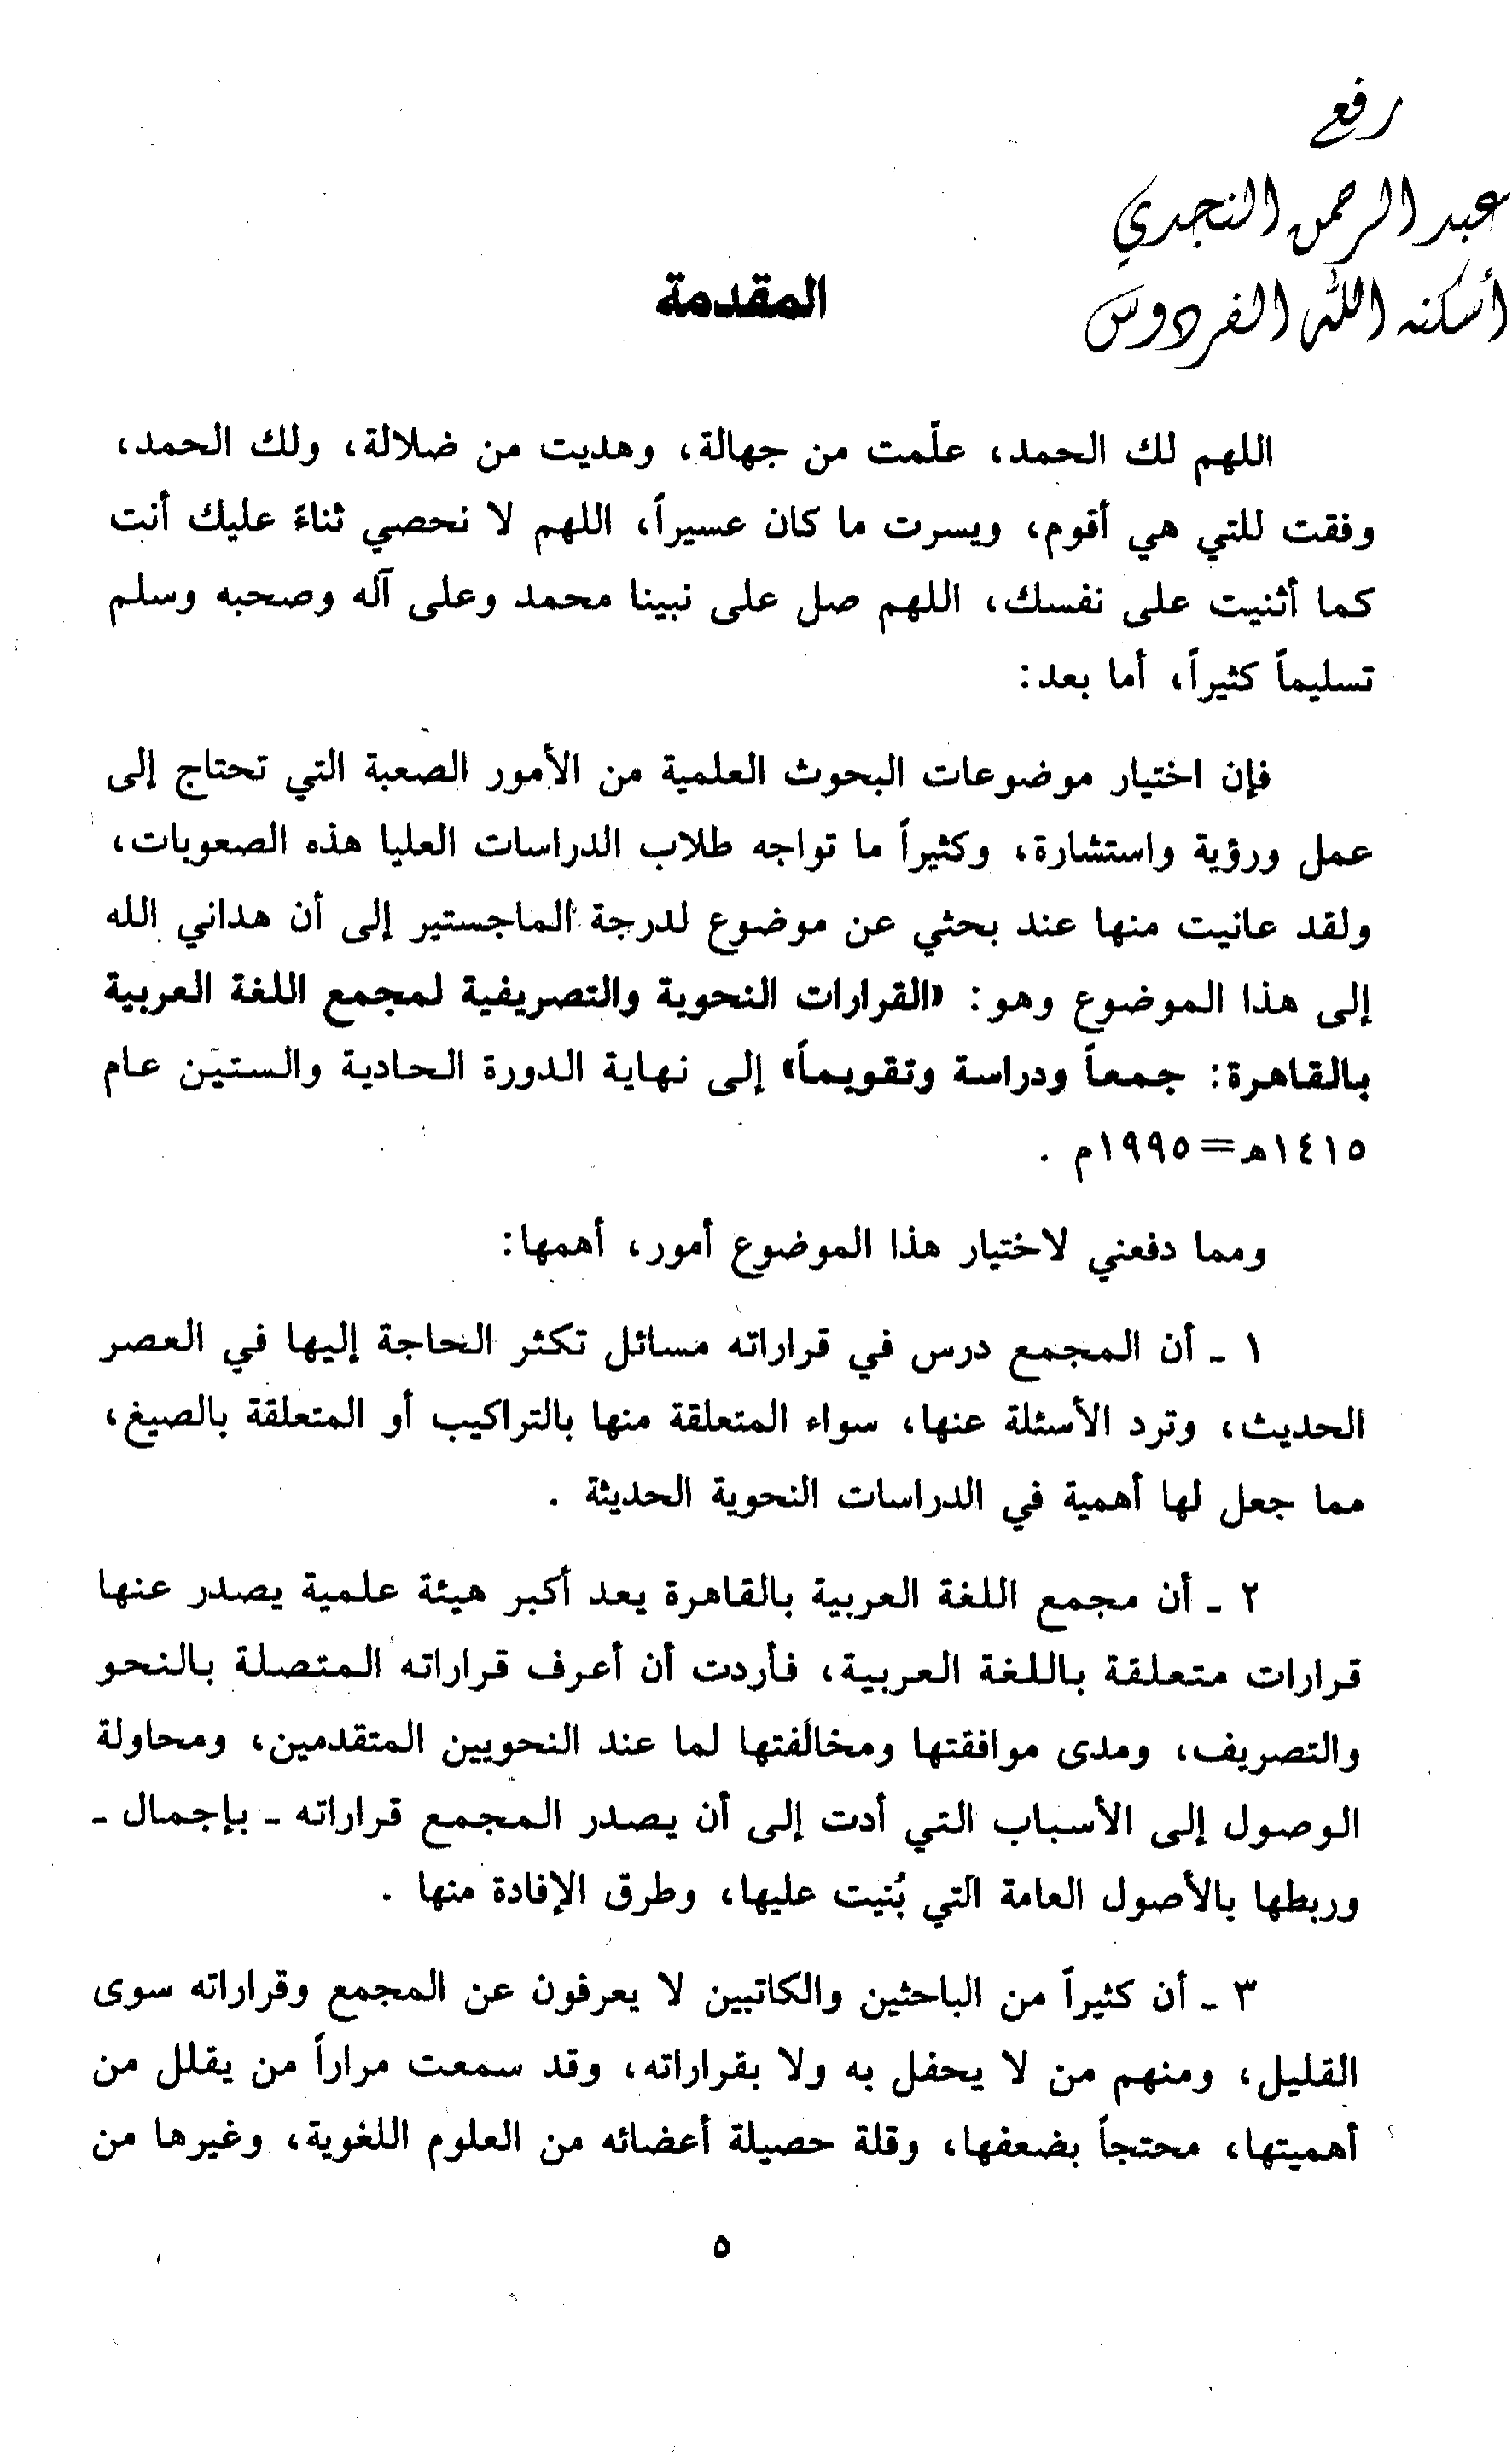 رفع
عبد الرحمن النجدي
أسكنه الله الفردوس
المقدمة
اللهم لك الحمد، علّمت من جهالة، وهديت من ضلالة، ولك الحمد،
وفقت للتي هي أقوم، ويسرت ما كان عسيراً، اللهم لا نحصي ثناءً عليك أنت
كما أثنيت على نفسك، اللهم صل على نبينا محمد وعلى آله وصحبه وسلم
تسليماً كثيراً، أما بعد:
فإن اختيار موضوعات البحوث العلمية من الأمور الصعبة التي تحتاج إلى
عمل ورؤية واستشارة، وكثيراً ما تواجه طلاب الدراسات العليا هذه الصعوبات،
ولقد عانيت منها عند بحثي عن موضوع لدرجة الماجستير إلى أن هداني الله
إلى هذا الموضوع وهو: «القرارات النحوية والتصريفية لمجمع اللغة العربية
بالقاهرة: جمعاً ودراسة وتقويماً» إلى نهاية الدورة الحادية والستين عام
١٤١٥هـ=١٩٩٥م .
ومما دفعني لاختيار هذا الموضوع أمور، أهمها:
١ ـ أن المجمع درس في قراراته مسائل تكثر الحاجة إليها في العصر
الحديث، وترد الأسئلة عنها، سواء المتعلقة منها بالتراكيب أو المتعلقة بالصيغ،
مما جعل لها أهمية في الدراسات النحوية الحديثة .
٢ ـ أن مجمع اللغة العربية بالقاهرة يعد أكبر هيئة علمية يصدر عنها
قرارات متعلقة باللغة العربية، فأردت أن أعرف قراراته المتصلة بالنحو
والتصريف، ومدى موافقتها ومخالفتها لما عند النحويين المتقدمين، ومحاولة
الوصول إلى الأسباب التي أدت إلى أن يصدر المجمع قراراته ـ بإجمال ـ
وربطها بالأصول العامة التي بُنيت عليها، وطرق الإفادة منها .
٣ ـ أن كثيراً من الباحثين والكاتبين لا يعرفون عن المجمع وقراراته سوى
القليل، ومنهم من لا يحفل به ولا بقراراته، وقد سمعت مراراً من يقلل من
أهميتها، محتجاً بضعفها، وقلة حصيلة أعضائه من العلوم اللغوية، وغيرها من
٥